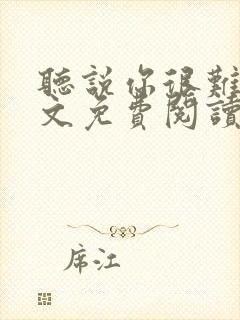 聽說你很難
文免費閱讀
席江